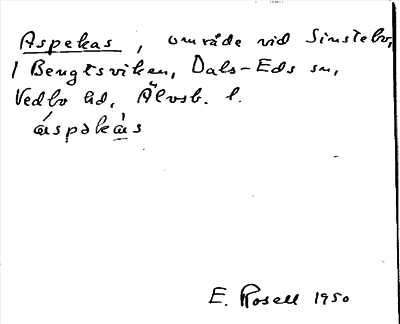 Aspekas, område vid Sinstebo,
/ Bengtsviken, Dals-Eds sn,
Vedbo hd, Älvsb. l.
áspəkàs
E. Rosell 1950